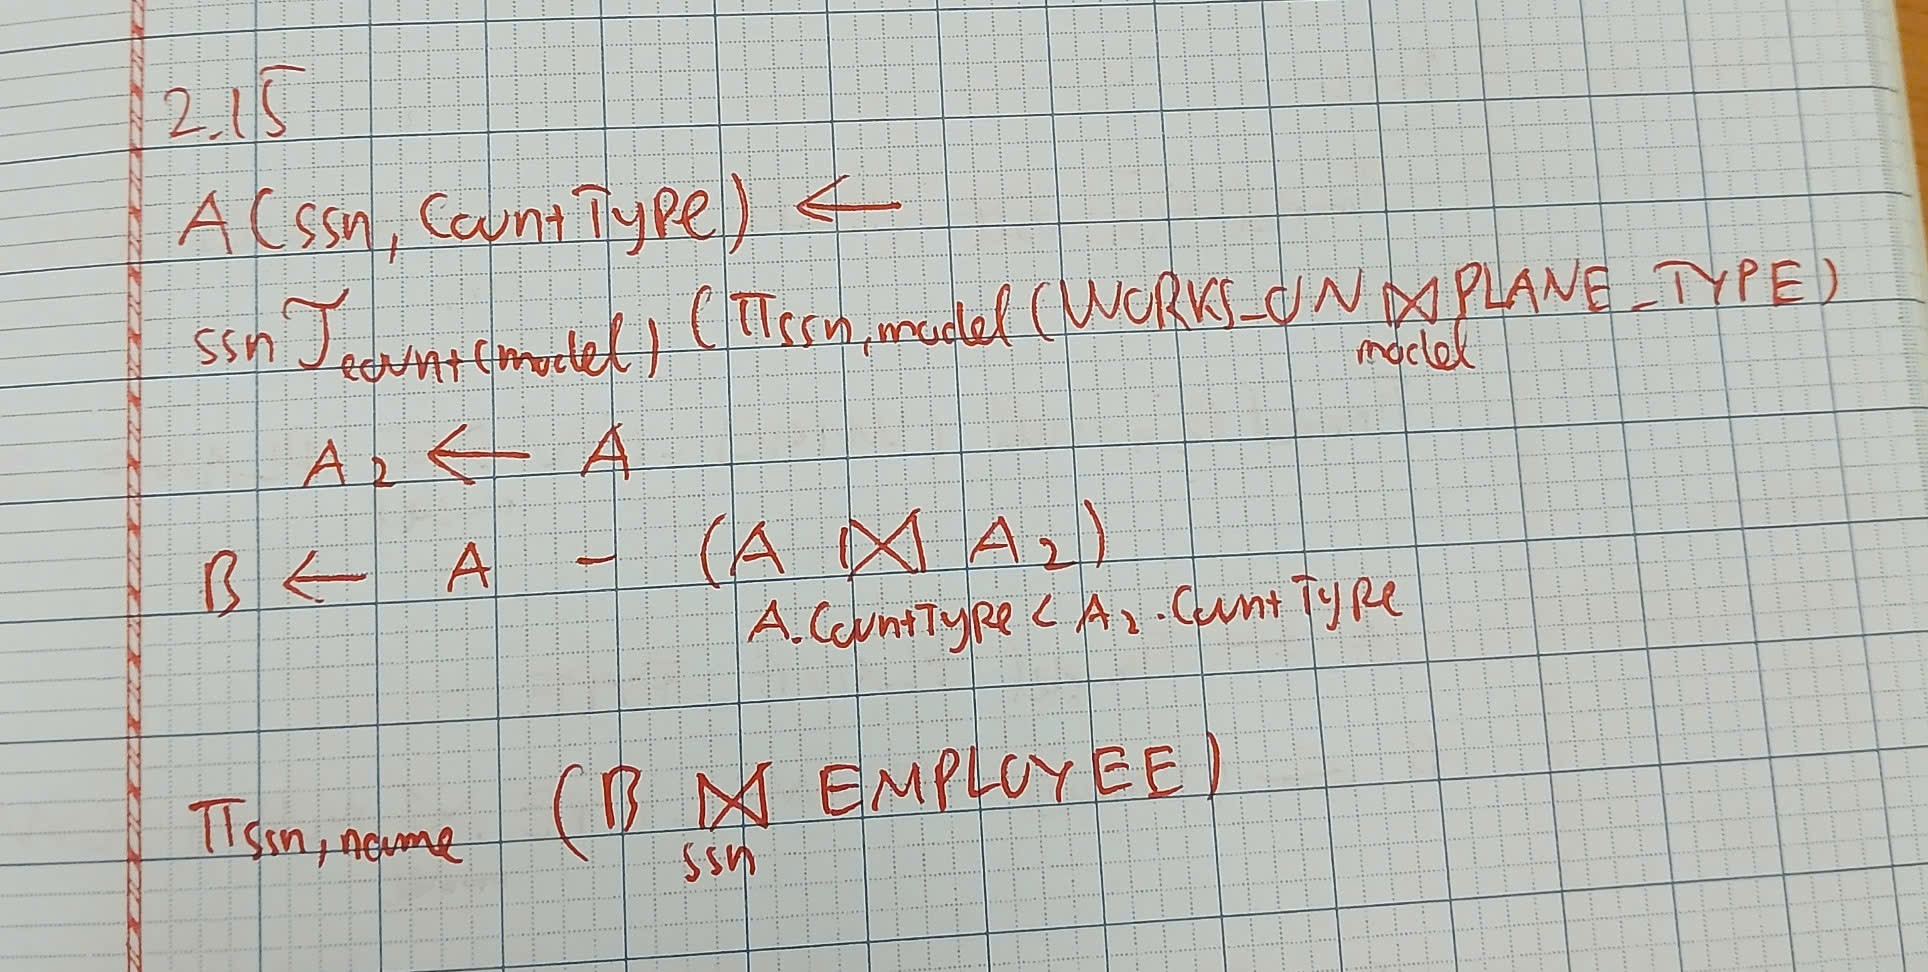 2.15
A(ssn, CountType) ←
ssn ℱ count(model) (π ssn,model (WORKS_ON ⋈ PLANE_TYPE)
model
A2 ← A
B ← A - (A ⋈ A2)
A.CountType < A2.CountType
π ssn,name (B ⋈ EMPLOYEE)
ssn